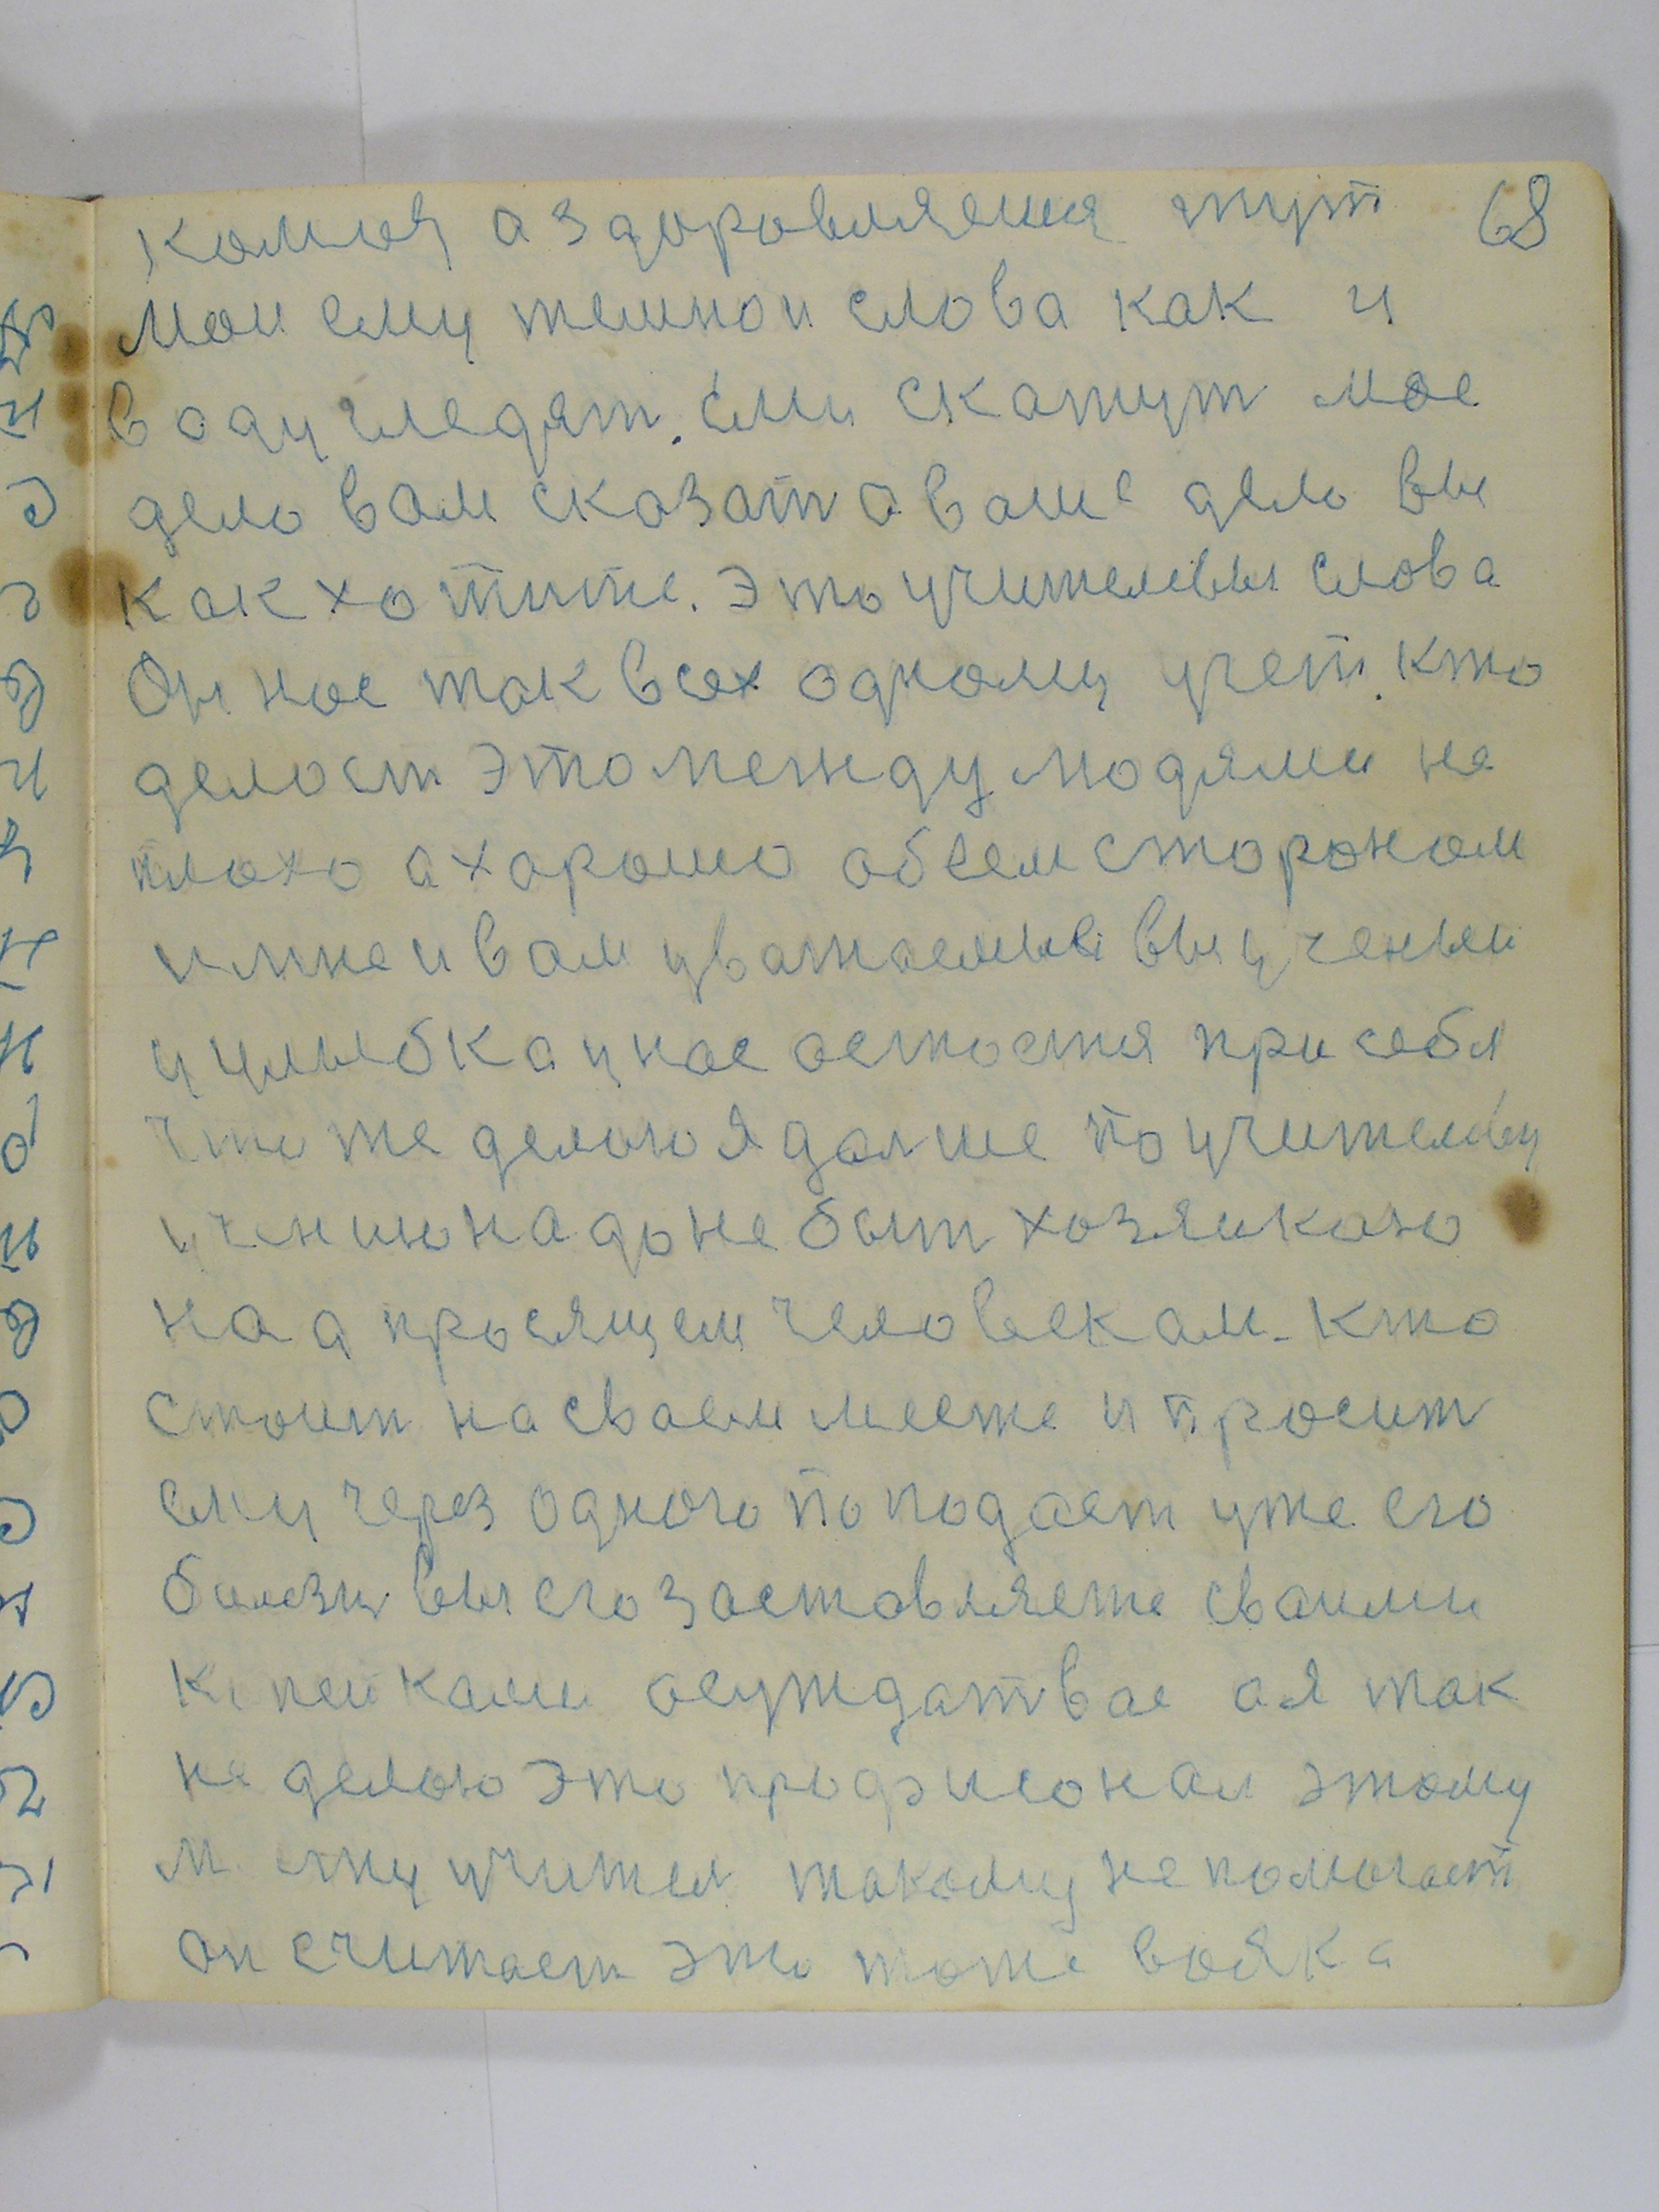 68
аздоровляеша тут
мои ему темнои слова как и
воду гледят. ёми скажут мое
дело вам сказат а ваше дело вы
как хотите. Это учителевы слова
Он нас так всех одному учет. кто
делает это между людями не
плохо а харашо обеем сторонам
и мне и вам уважаемыи вы ученыи
и улыбка у нас астается при себя
Что же делаю я далше по учителеву
учению надо не быт хозяикою
над просящем человекам. кто
стоит на сваем месте и просит
ему через одного поподает уже его
болезн вы его заставляете сваими
копеиками осуждат вас а я так
не делаю это професионал этому
учител такому не помогает
он считает это тоже вояка